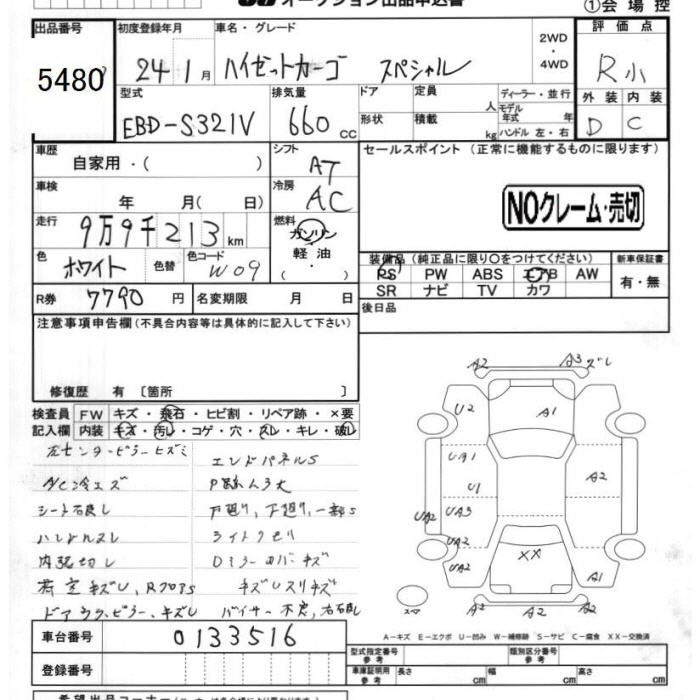 オークション出品申込書
①会場控
出品番号 初度登録年月 車名・グレード 2WD・4WD 評価点
5480 24 1月 ハイゼットカーゴ スペシャル R小
型式 排気量 ドア 定員 人 ディーラー・並行 外装 内装
EBD-S321V 660cc 形状 積載 kg モデル年式 年 ハンドル 左・右 D C
車歴 シフト セールスポイント(正常に機能するものに限ります)
自家用・( ) AT
車検 冷房
年 月(日) AC NOクレーム・売切
走行 燃料
9万9千213km ガソリン・軽油・( )
色 色替 色コード 装備品(純正品に限り○をつけてください) 新車保証書
ホワイト W09 PS PW ABS エアB AW 有・無
R券 7790円 名変期限 月 日 SR ナビ TV カワ
注意事項申告欄(不具合内容等は具体的に記入して下さい) 後日品
修復歴 有 〔箇所 〕
検査員 FW キズ・飛石・ヒビ割・リペア跡・×要
記入欄 内装 キズ・汚れ・コゲ・穴・スレ・キレ・破れ
左センターピラーヒズミ エンドパネルS
A/C冷エズ
シート右破れ 下廻り、一部S
ハンドルスレ ライトクモリ
キズレスリキズ
A2 A3 ズレ
U2 A1
UA1
U1 A2
UA3
UA2
UA2 XX
UA2 A1
スペア A2 A2 A3
A-キズ E-エクボ U-凹み W-補修跡 S-サビ C-腐食 XX-交換済
車台番号 0133516 型式指定番号 参考 類別区分番号 参考
登録番号 車庫証明用 参考 長さ cm 幅 cm 高さ cm